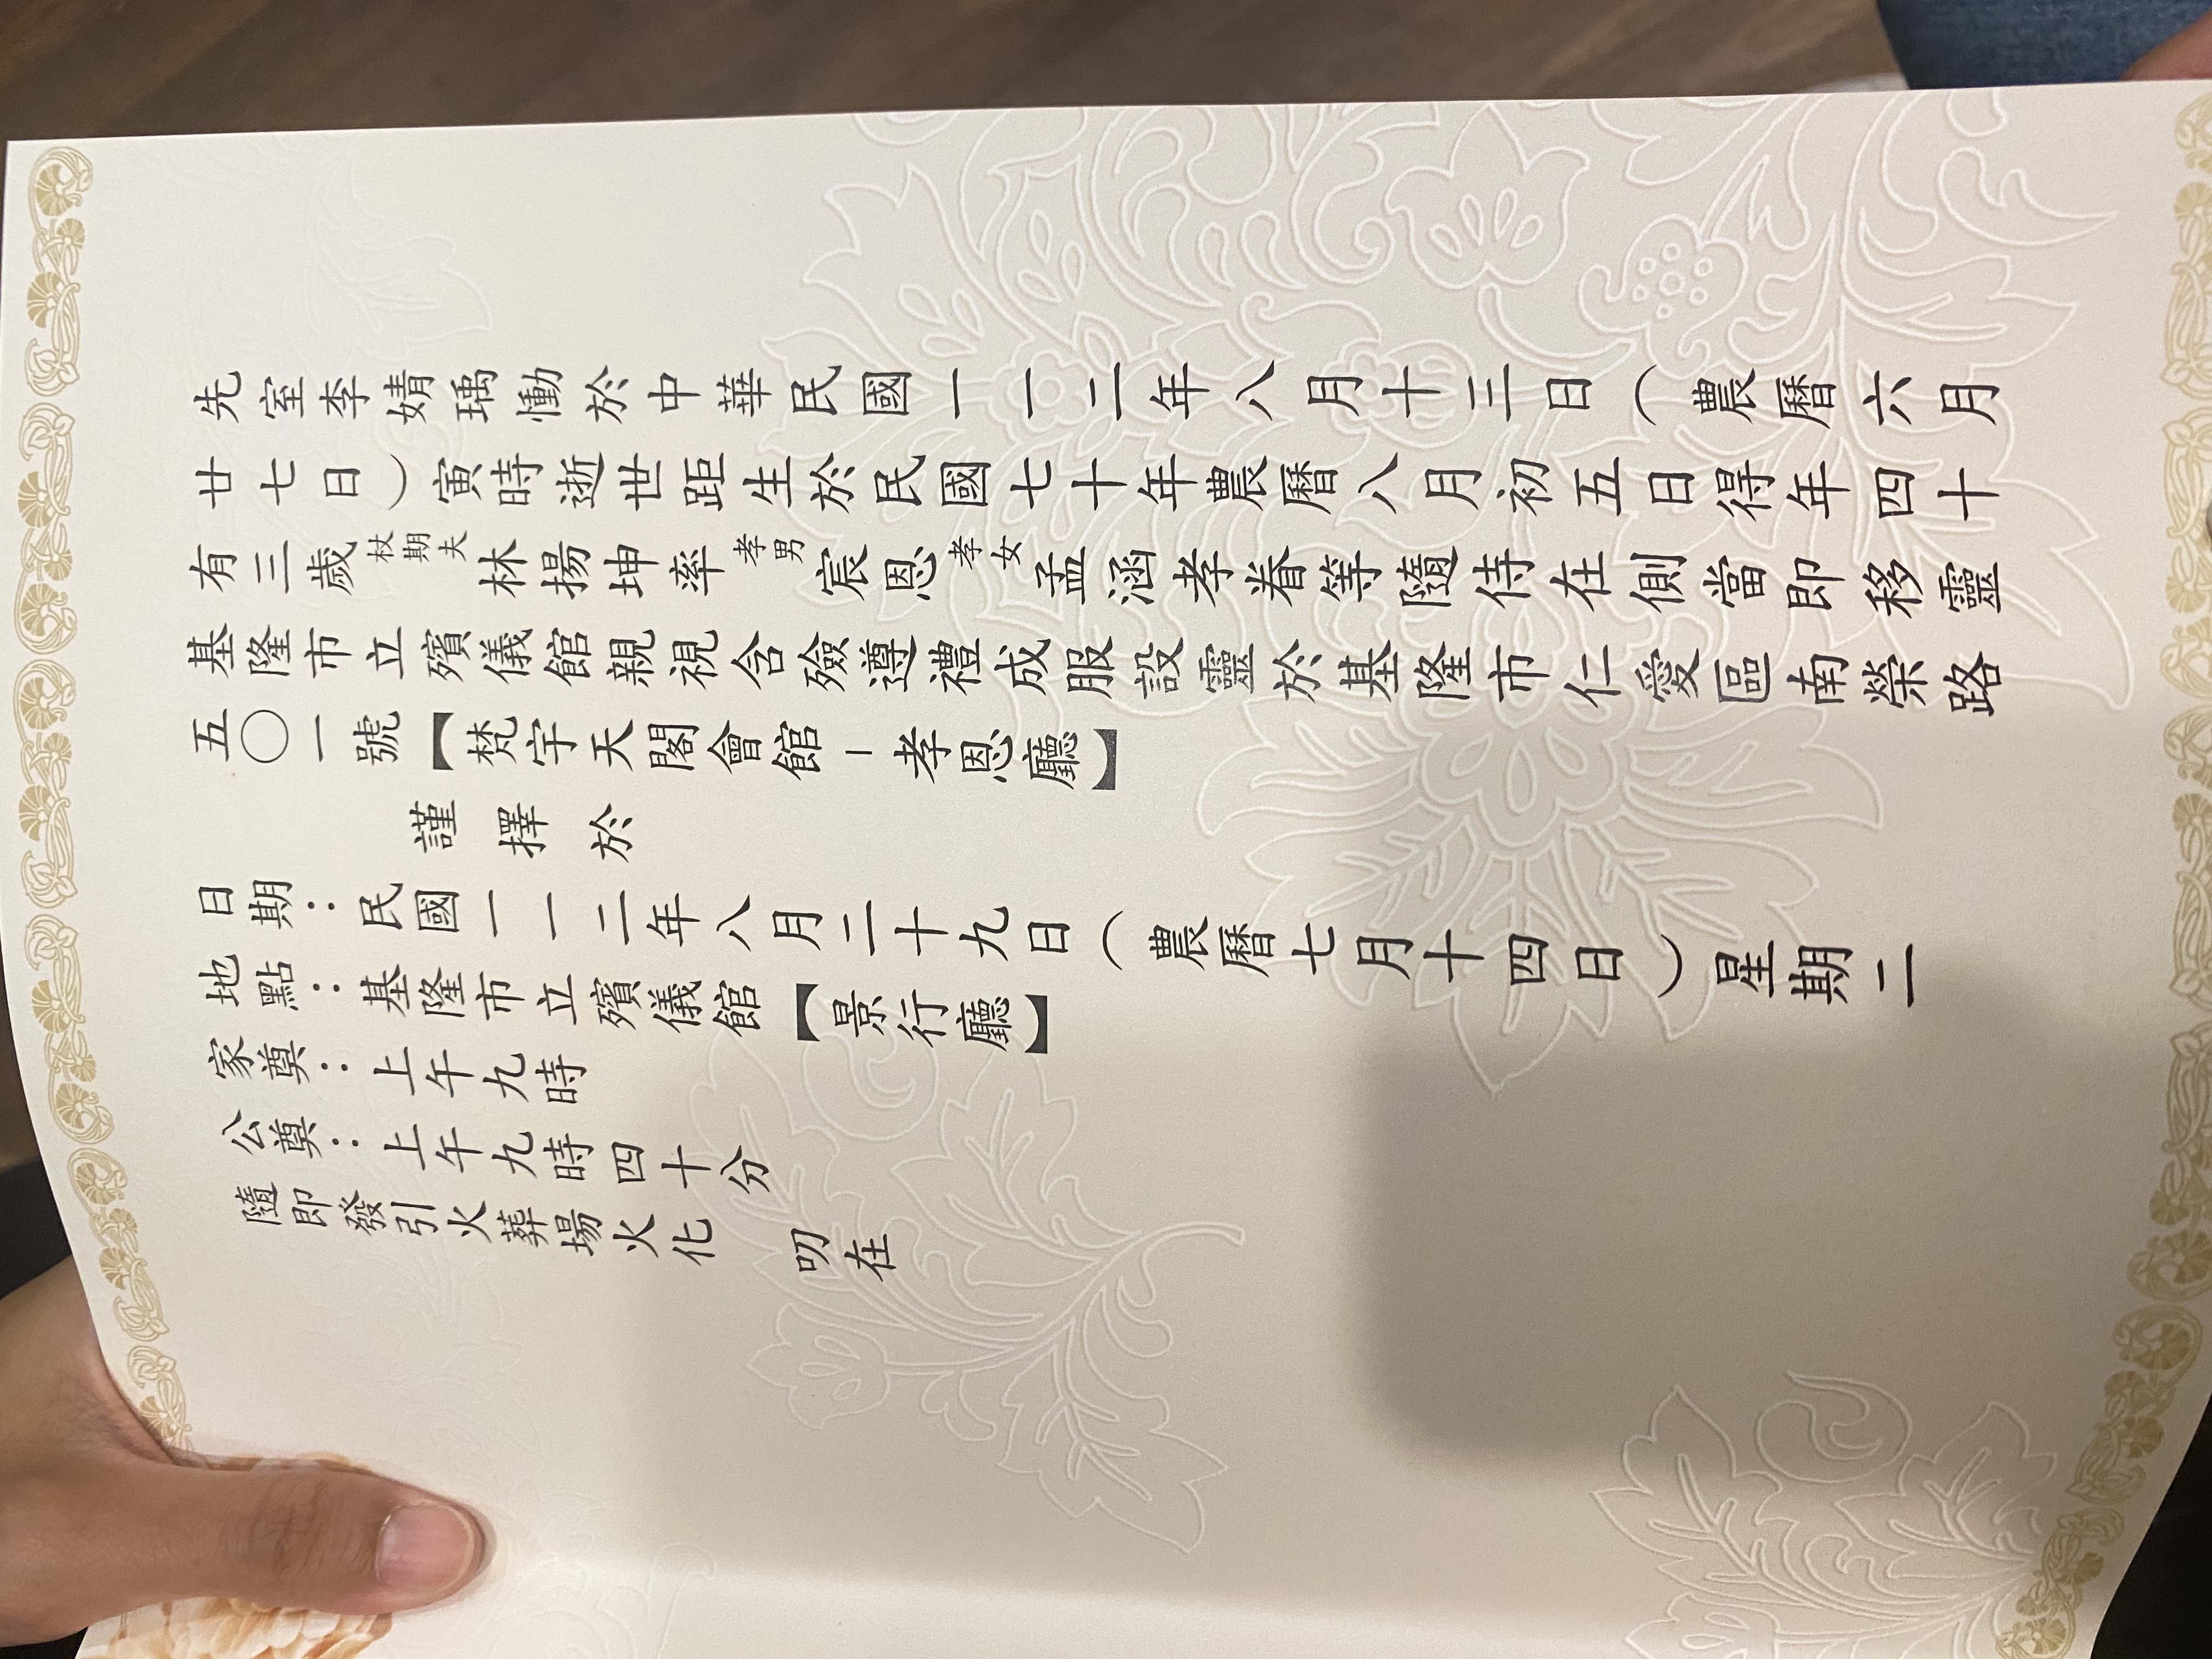 先室李婧瑀慟於中華民國一一二年八月十三日（農曆六月
廿七日）寅時逝世距生於民國七十年農曆八月初五日得年四十
有三歲杖期夫林揚坤率孝男宸恩孝女孟涵孝眷等隨侍在側當即移靈
基隆市立殯儀館親視含殮遵禮成服設靈於基隆市仁愛區南榮路
五〇一號【梵宇天閣會館－孝恩廳】
謹擇於
日期：民國一一二年八月二十九日（農曆七月十四日）星期二
地點：基隆市立殯儀館【景行廳】
家奠：上午九時
公奠：上午九時四十分
隨即發引火葬場火化
叨在